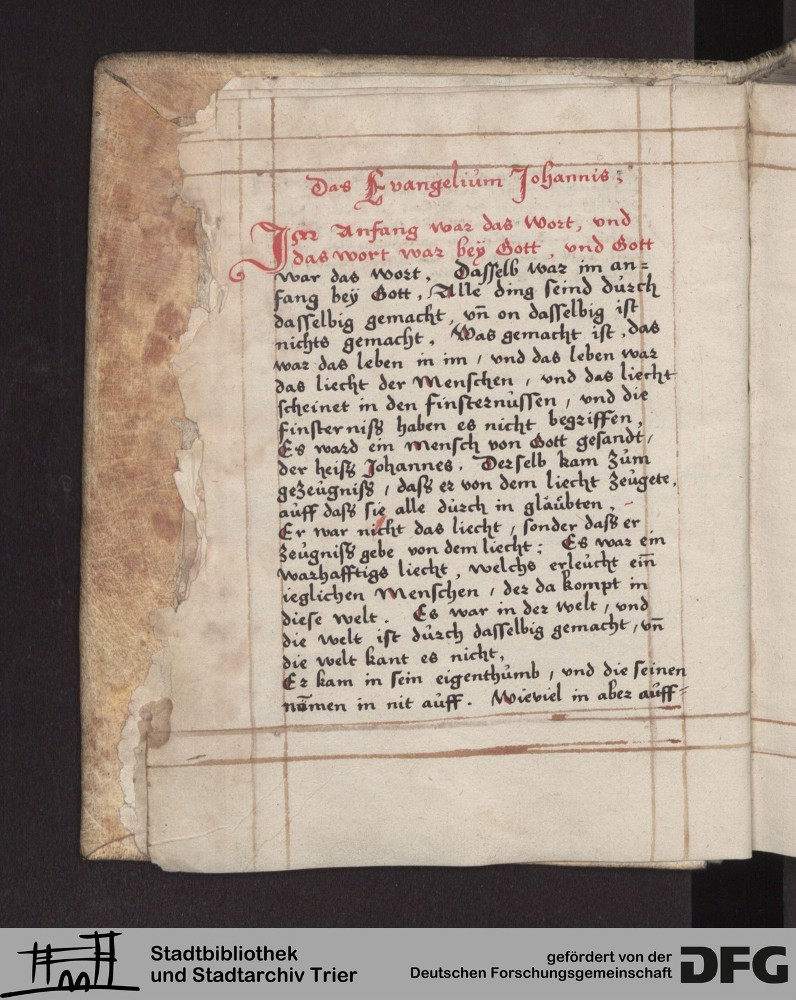 Das Evangelium Johannis:
Im Anfang war das Wort, und
das wort war beÿ Gott, und Gott
war das wort. Dasselb war im an=
fang beÿ Gott, Alle ding seind dŭrch
dasselbig gemacht, vn̄ on dasselbig ist
nichts gemacht. Was gemacht ist, das
war das leben in im / vnd das leben war
das liecht der Menschen, vnd das liecht
scheinet in den finsternŭssen, vnd die
finsterniß haben es nicht begriffen,
Es ward ein mensch von Gott gesandt,
der heiß Johannes. Derselb kam zŭm
gezeŭgniß / dass er von dem liecht zeŭgete,
aŭff dass sie alle dŭrch in glaŭbten,
Er war nicht das liecht, sonder dass er
zeŭgniß gebe von dem liecht: Es war ein
warhafftigs liecht, welchs erleŭcht ein̄
ieglichen Menschen, der da kompt in
diese welt. Es war in der welt, vnd
die welt ist dŭrch dasselbig gemacht, vn̄
die welt kant es nicht,
Er kam in sein eigenthŭmb, vnd die seinen
namen in nit aŭff. Wieviel in aber aŭff=
Stadtbibliothek
und Stadtarchiv Trier
gefördert von der
Deutschen Forschungsgemeinschaft
DFG